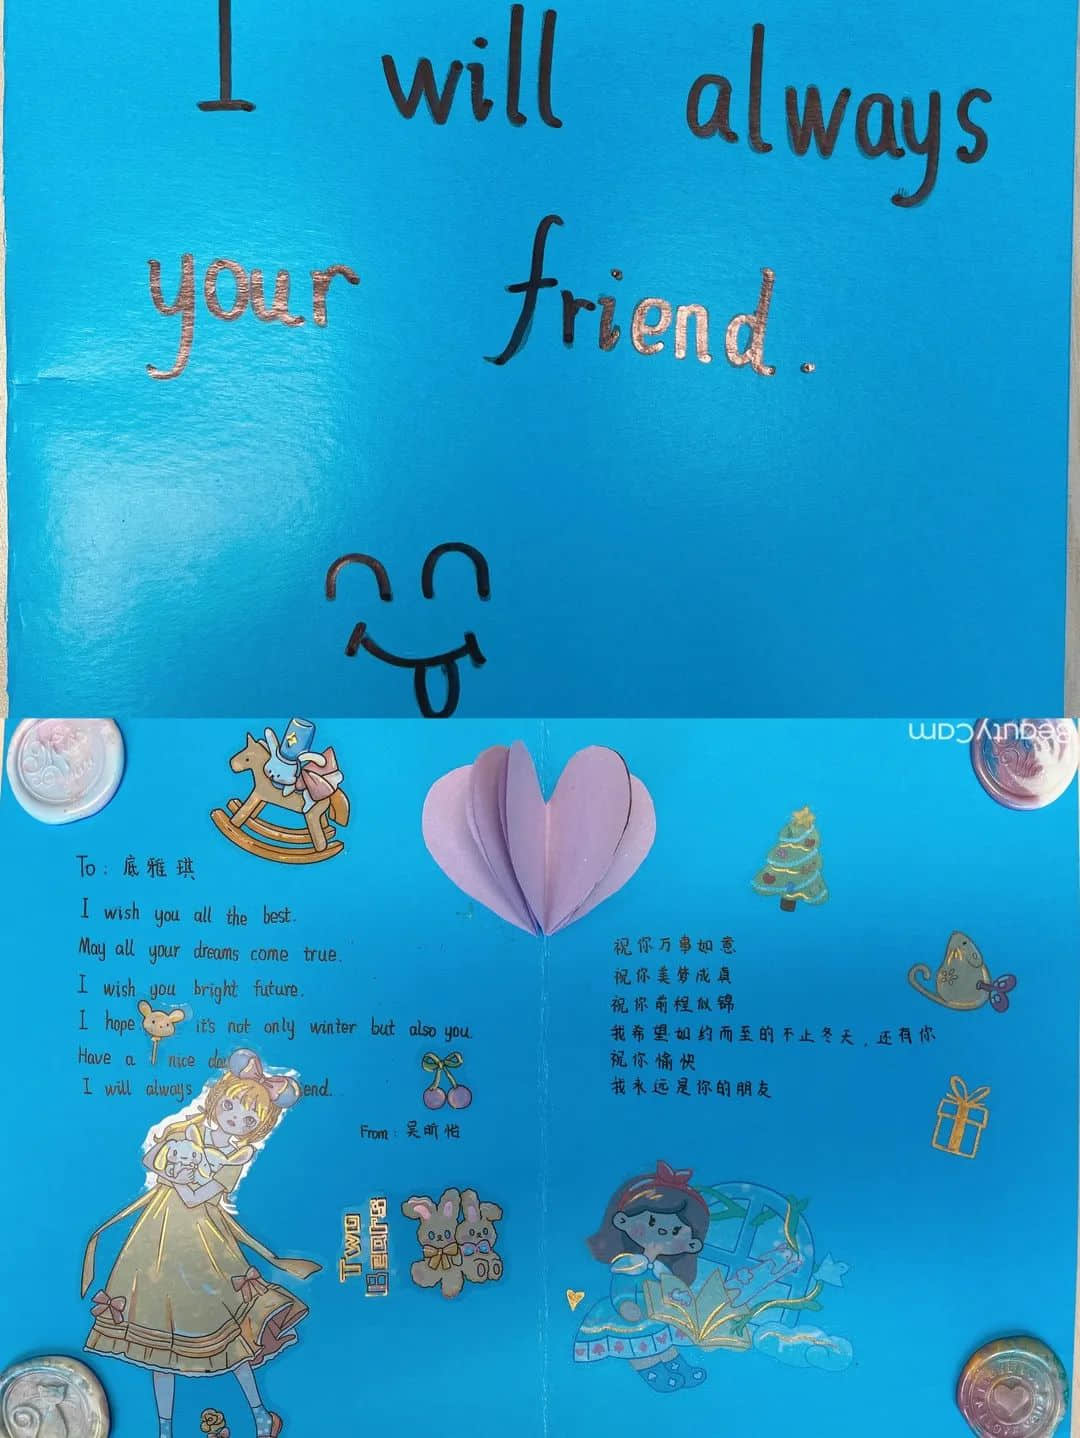 I will always
your friend.
BeautyCam
To: 底雅琪
I wish you all the best.
May all your dreams come true.
I wish you bright future.
I hope it's not only winter but also you
Have a nice da
I will always end.
From: 吴昕怡
Two
Bears
祝你万事如意
祝你美梦成真
祝你前程似锦
我希望如约而至的不止冬天，还有你
祝你愉快
我永远是你的朋友